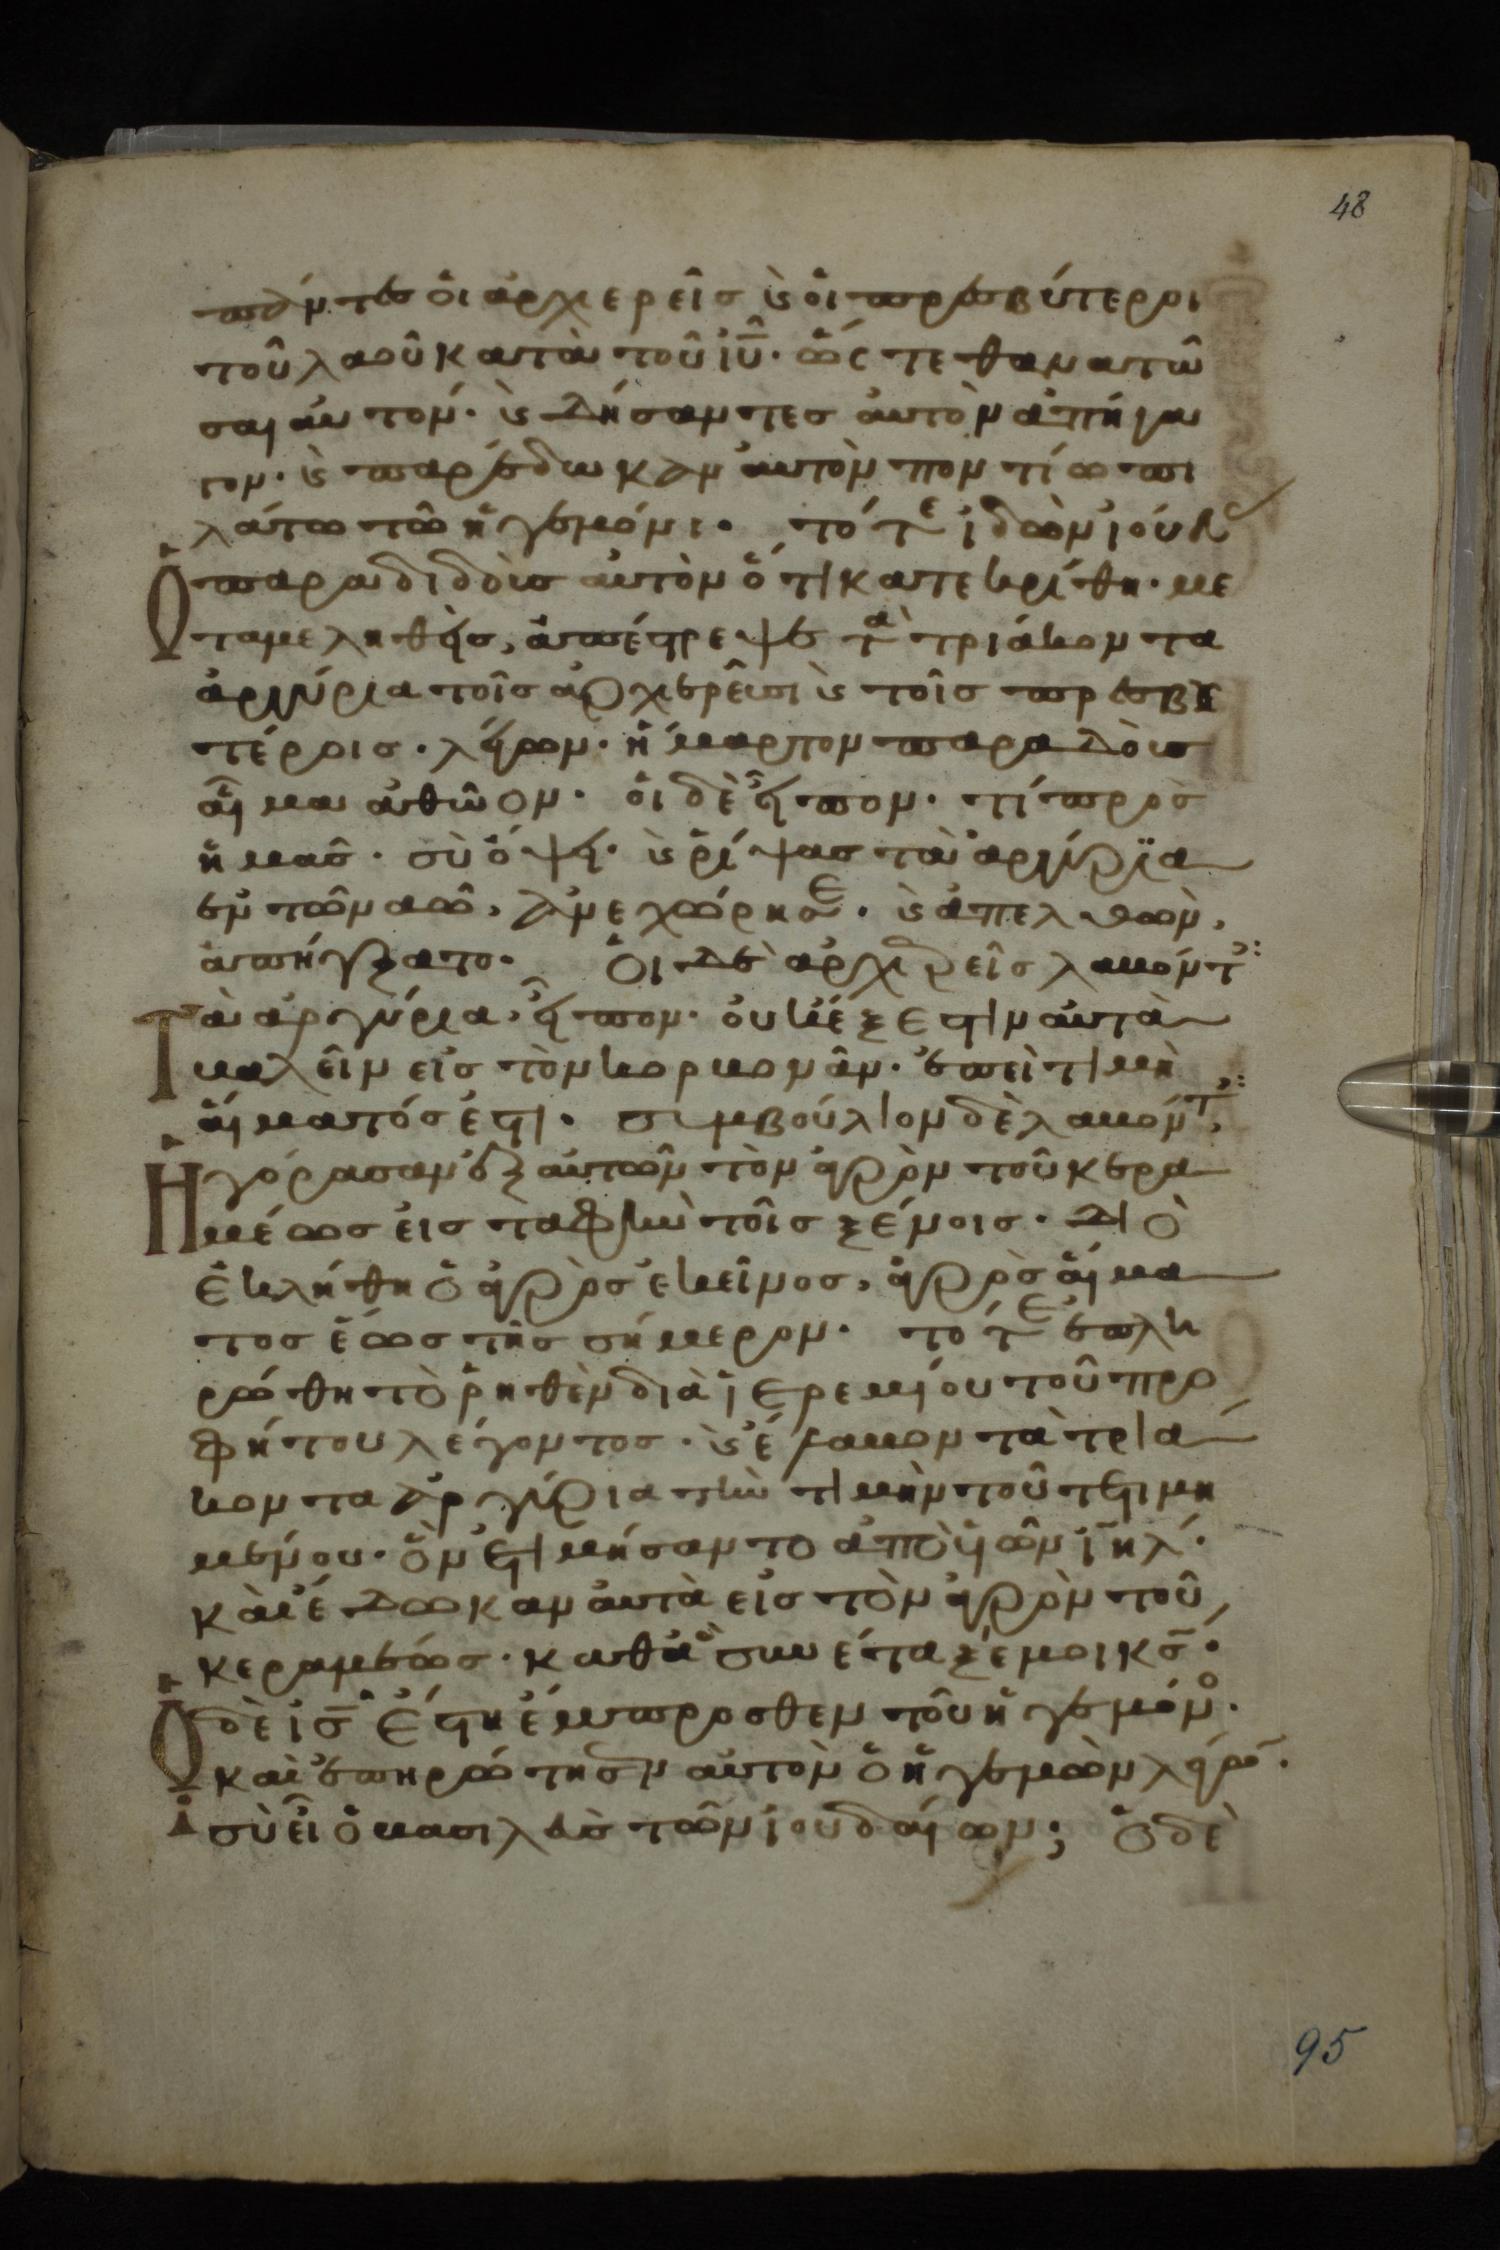 48
πάντες οἱ ἀρχιερεῖς ϗ οἱ πρεσβύτεροι
τοῦ λαοῦ κατὰ τοῦ ἰῦ· ὥς τε θανατῶ
σαι αὐτόν· ϗ δήσαντες αὐτὸν ἀπήγα
γον· ϗ παρέδωκαν αὐτὸν ποντίω πι
λάτω τῶ ἡγεμόνι· τότε ἰδὼν ἰούδας
Ὁ παραδιδοὺς αὐτὸν ὅτι κατεκρίθη· με
ταμεληθεὶς, ἀπέστρεψε τὰ τριάκοντα
ἀργύρια τοῖς ἀρχιερεῦσι ϗ τοῖς πρεσβυ
τέροις· λέγων· ἥμαρτον παραδοὺς
αἷμα ἀθῶον· οἱ δὲ εἶπον· τί πρὸς
ἡμᾶς· σὺ ὄψει· ϗ ῥίψας τὰ ἀργύρια
ἐν τῶ ναῶ, ἀνεχώρησε· ϗ ἀπελθὼν,
ἀπήγξατο· Οἱ δὲ ἀρχιερεῖς λαβόντ
Τὰ ἀργύρια, εἶπον· οὐκ ἔξεστιν αὐτὰ
βαλεῖν εἰς τὸν κορβονᾶν· ἐπεὶ τιμὴ
αἵματός ἐστι· συμβούλιον δὲ λαβόντ,
Ἠγόρασαν ἐξ αὐτῶν τὸν ἀγρὸν τοῦ κερα
μέως εἰς ταφὴν τοῖς ξένοις· διὸ
ἐκλήθη ὁ ἀγρὸς ἐκεῖνος, ἀγρὸς αἵμα
τος ἕως τῆς σήμερον· τότε ἐπλη
ρώθη τὸ ῥηθὲν διὰ ἰερεμίου τοῦ προ
φήτου λέγοντος· ϗ ἔλαβον τὰ τριά
κοντα ἀργύρια τὴν τιμὴν τοῦ τετιμη
μένου· ὃν ἐτιμήσαντο ἀπὸ υἱῶν ἰηλ·
καὶ ἔδωκαν αὐτὰ εἰς τὸν ἀγρὸν τοῦ
κεραμέως· καθὰ συνέταξέ μοι κς·
Ὁ δὲ ις ἔστη ἔμπροσθεν τοῦ ἡγεμόνο·
καὶ ἐπηρώτησεν αὐτὸν ὁ ἡγεμὼν λέγω·
σὺ εἶ ὁ βασιλεὺς τῶν ἰουδαίων; ὁ δὲ
95